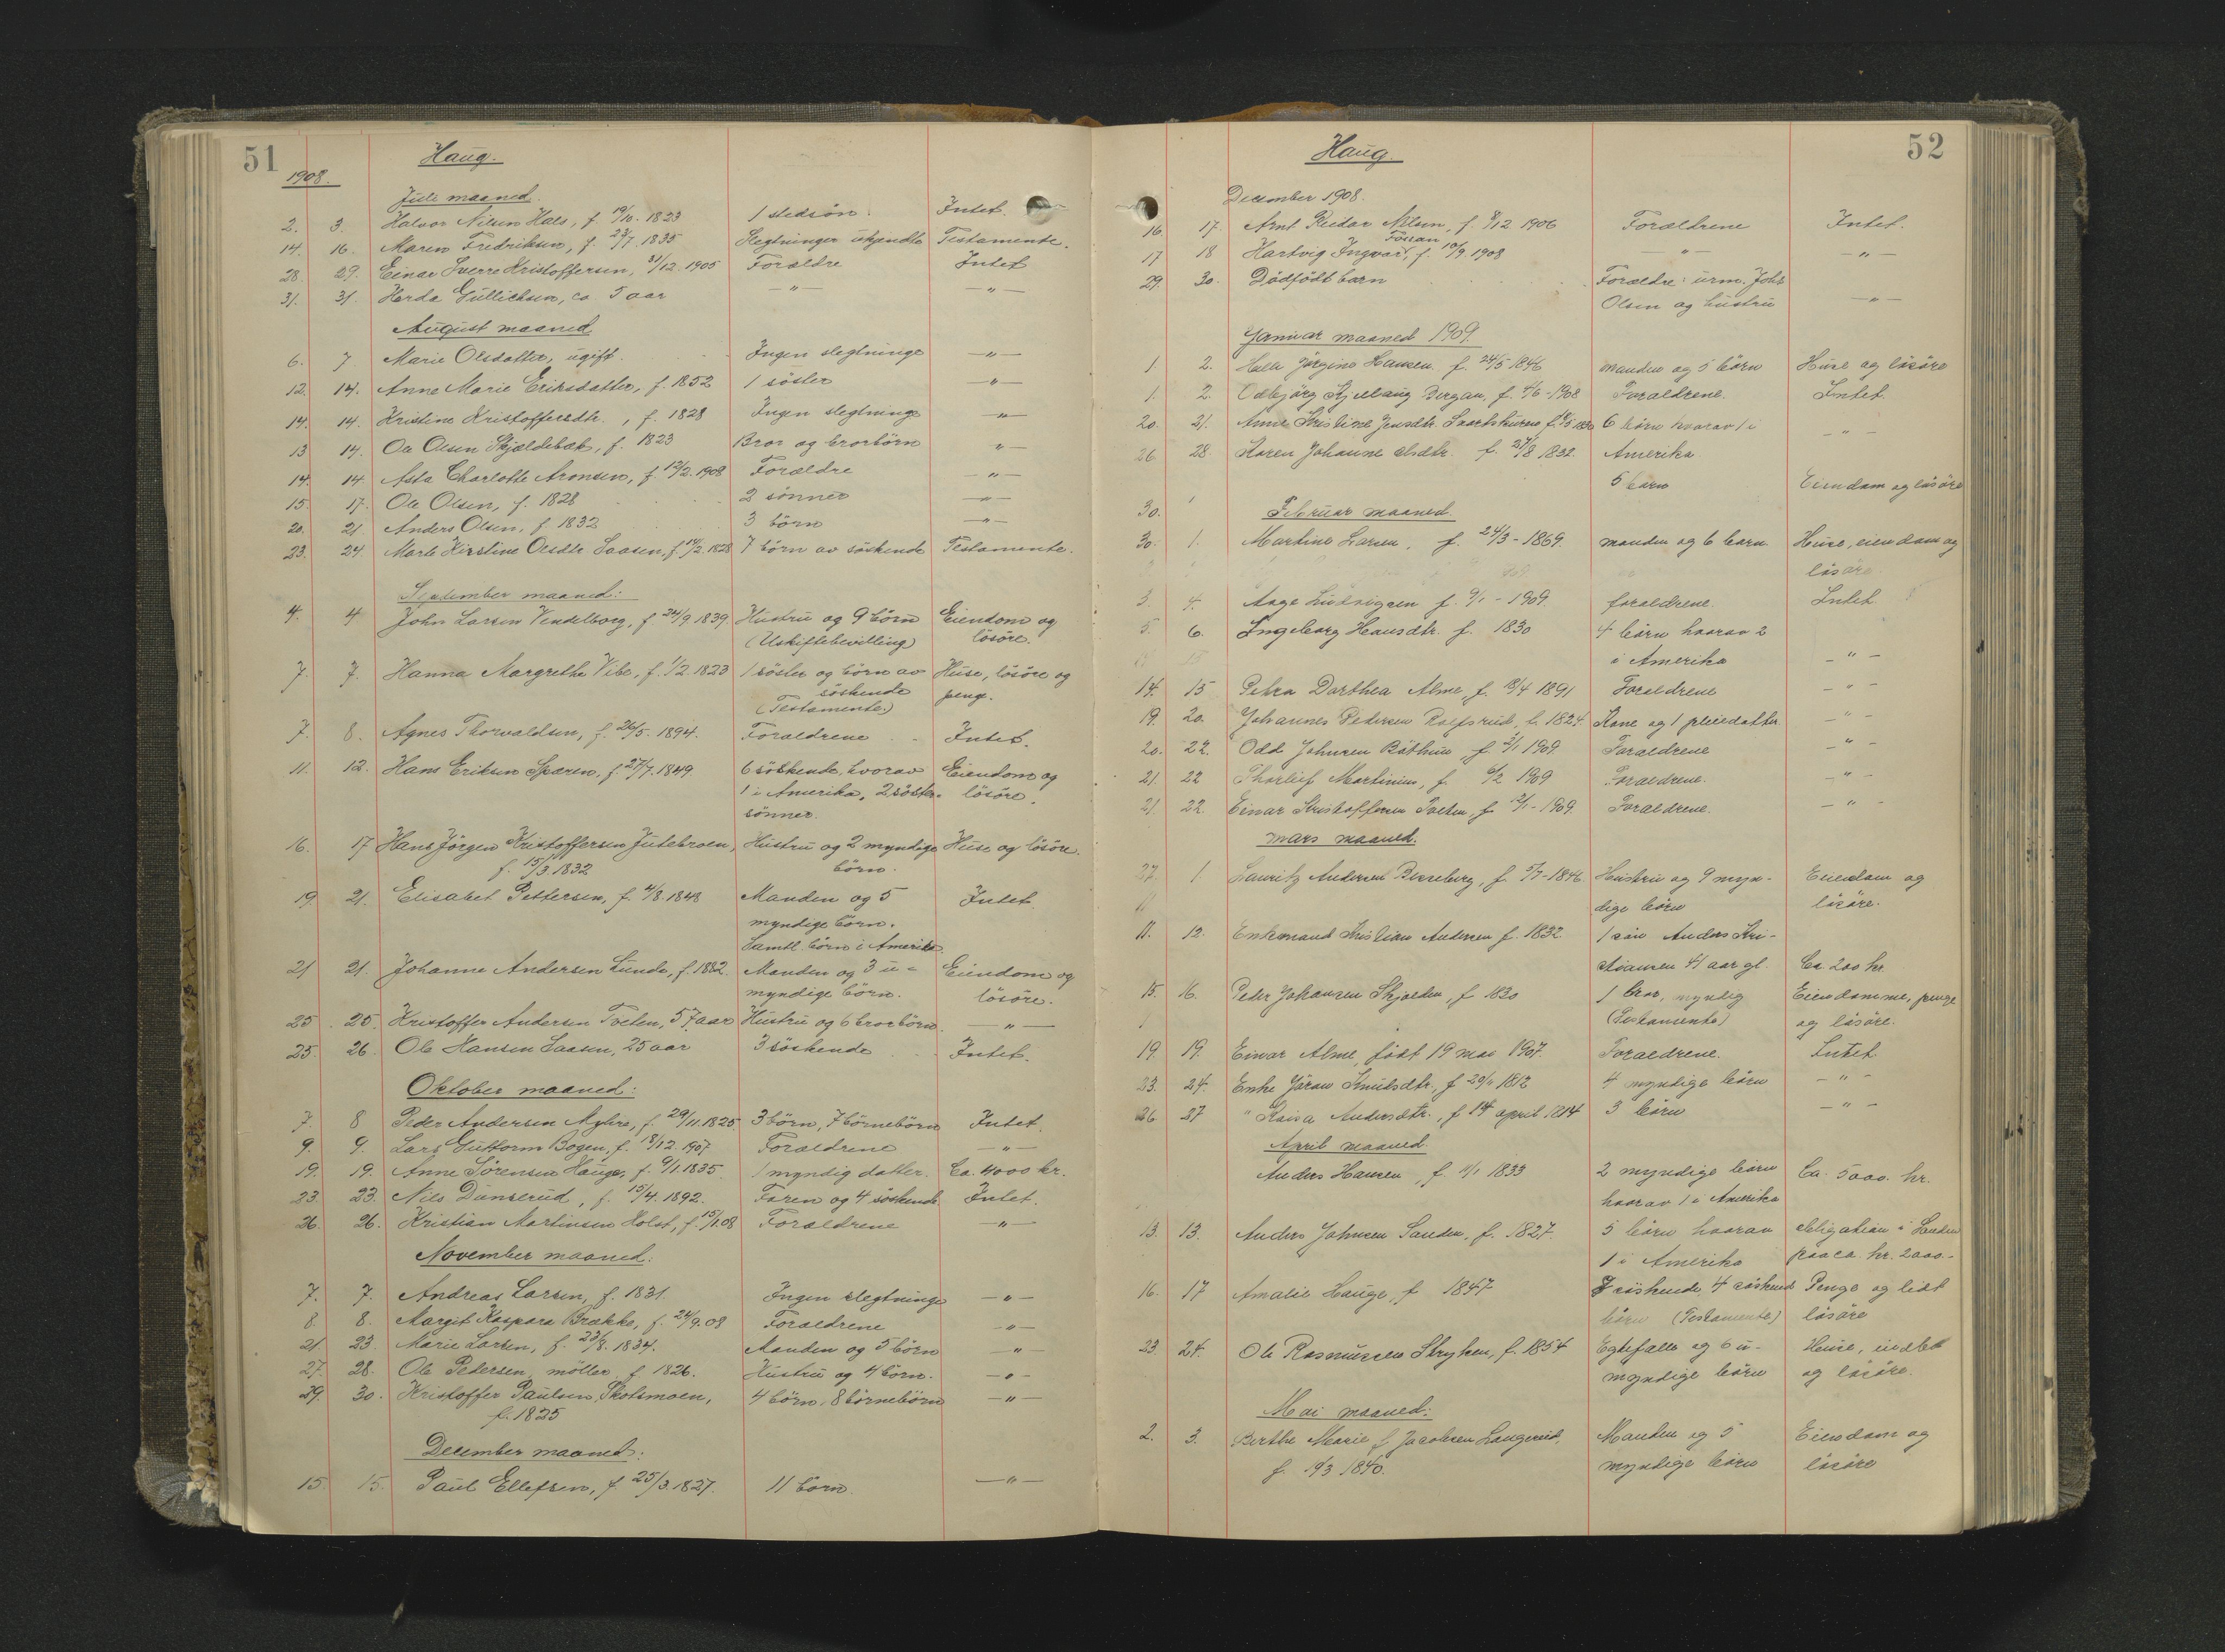 51
Haug.
1908.
Juli maaned.
2. 3. Halvor Nilsen Hals, f. 19/10. 1823 1 stedsön. Intet.
14. 16. Maren Fredriksen, f. 23/7. 1835 Slegtninger ukjendte Testamente.
28. 29. Einar Sverre Kristoffersen, 31/12. 1905 Foræeldre Intet
31. 31. Herda Gullichsen, ca 5 aar —"— —"—
August maaned
6. 7 Marie Olsdatter, ugift. Ingen slegtninge —"—
12. 14. Anne Marie Eriksdatter, f. 1852 1 söster —"—
14. 14. Kristine Kristoffersdtr., f. 1828 Ingen slegtninge —"—
13 14. Ole Olsen Skjældebæk, f. 1823 Bror og brorbörn —"—
14. 14 Asta Charlotte Aronsen, f. 12/2. 1908 Forældre —"—
15. 17. Ole Olsen, f. 1828 2 sönner —"—
20. 21 Anders Olsen, f. 1832 3 börn —"—
23. 24 Marte Kirstine Olsdtr Saasen, f. 14/2. 1828 7 börn av söskende Testamente.
September maaned:
4. 4 John Larsen Vendelborg, f 24/9. 1839. Hustru og 9 börn Eiendom og
(Uskiftebevilling) lösöre.
7. 7. Hanna Margrethe Vibe, f. 1/2. 1823 1 söster og börn av Huse, lösöre og
söskende penge.
(Testamente.)
7. 8. Agnes Thorvaldsen, f. 26/5. 1894. Forældrene Intet.
11. 12. Hans Eriksen Sparen, f. 27/7. 1849. 6 söskende, hvorav Eiendom og
1 i Amerika, 2 söster- lösöre.
sönner.
16. 17 Hans Jörgen Kristoffersen Jutebroen, Hustru og 2 myndige Huse og lösöre.
f. 15/3. 1832 börn.
19 21. Elisabet Pettersen, f. 4/8. 1848 Manden og 5 Intet.
myndige börn.
Samtl. börn i Amerika.
21 21. Johanne Andersen Lunde, f. 1882. Manden og 3 u- Eiendom og
myndige börn. lösöre.
25 25. Kristoffer Andersen Tveten, 57 aar Hustru og 6 brorbörn. —"—
25. 26. Ole Hansen Saasen, 25 aar 3 söskende Intet.
Oktober maaned:
7. 8 Peder Andersen Myhre, f. 29/11. 1825 3 börn, 7 börnebörn Intet.
9. 9. Lars Guttorm Bogen, f. 18/12. 1907 Forældrene —"—
19. 19. Anne Sörensen Hauger, f. 9/1. 1835 1 myndig datter. Ca. 4000 kr.
23. 23. Nils Dunserud, f. 15/4. 1892. Faren og 4 söskende. Intet.
26. 26. Kristian Martinsen Holst, f. 15/1. 08 Forældrene —"—
November maaned:
7. 7. Andreas Larsen, f. 1831. Ingen slegtninge —"—
8. 8. Margit Kaspara Brække, f. 24/9. 08 Forældrene —"—
21 23. Marie Larsen, f. 23/8. 1834. Manden og 5 börn —"—
27. 28. Ole Pedersen, möller f. 1826. Hustru og 4 börn. —"—
29. 30. Kristoffer Paulsen Skotsmoen, 4 börn, 8 börnebörn —"—
f. 1825
December maaned:
15. 15. Paul Ellefsen, f. 25/3. 1827. 11 börn. —"—
52
Haug.
December 1908.
16. 17. Arnt Reidar Nilsen, f. 8/12 1906 Forældrene Intet.
Fossan
17 18 Hartvig Ingvar, f. 10/9. 1908 —"— —"—
29. 30. Dödfödt barn Forældre: urm. Johs
Olsen og hustru —"—
Januar maaned 1909.
1 2. Jörgine Hansen. f. 24/5 1846 manden og 5 börn Huse og lösöre
1. 2. Odbjörg Bergan, f. 4/6-1908 Forældrene. Intet.
20. 21. Anne Kristine Jensdtr. 6 börn hvorav 1 i —"—
26. 28 Karen Johanne Olsdtr. f. 27/8 1832. Amerika.
5 börn Eiendom og lösöre
30. Februar maaned.
30. 1. Martine Larsen, f. 24/3-1869. manden og 6 barn. Huse, eiendom og
lösöre.
3. 4. Aage Ludvigsen f. 9/1-1909. forældrene. Intet
5. 6. Ingeborg Hansdtr. f. 1830 4 börn hvorav 2
i Amerika —"—
14. 15 Petra Dorthea Alme, f. 18/4 1891 Forældrene —"—
19. 20. Johannes Pedersen Rolfsrud, f. 1824 Kone og 1 pleiedatter —"—
20. 22. Odd Johnsen Båthus f. 2/1 1909 Forældrene —"—
21. 22 Thorleif Martinsen, f. 6/2 1909 Forældrene. —"—
21. 22. Einar Kristoffersen Tveten, f 2/1-1909. Forældrene. —"—
mars maaned.
27. 1. Lauritz Andersen Bisseberg, f. 5/7-1846. Hustru og 9 myn- Eiendom og
dige börn lösöre.
11. 12. Enkemand Kristian Andersen f. 1832. 1 sön Anders Kri-
stiansen 41 aar gl. Ca. 200 kr.
15. 16. Peder Johansen Skjolden, f 1830 1 bror, myndig Eiendomme, penge
(Testamente) og lösöre.
19. 19. Einar Alme, födt 19 mai 1907. Forældrene. Intet
23. 24. Enke Jöran Knutsdtr., f 20/11 1812 4 myndige börn —"—
26 27 " Kaisa Andersdtr., f. 14 april 1814 3 börn —"—
April maaned.
Anders Hansen, f. 11/1 1833 2 myndige börn Ca. 5000. kr.
hvorav 1 i Amerika
13. 13. Anders Johnsen Sanden, f. 1827. 5 börn hvorav obligation i Landen
1 i Amerika paa ca. kr. 2000.-
16. 17 Amalie Hauge, f 1847 söskende, 4 söskende Penge og lidt
börn (Testamente) lösöre
23. 24. Ole Rasmussen Stryken, f. 1854 Egtefælle og 6 u- Huse, indbo
myndige börn og lösöre.
Mai maaned:
2. 3. Berthe Marie f. Jacobsen Langerud, Manden og 5 Eiendom og
f. 19/3 1840. myndige börn lösöre